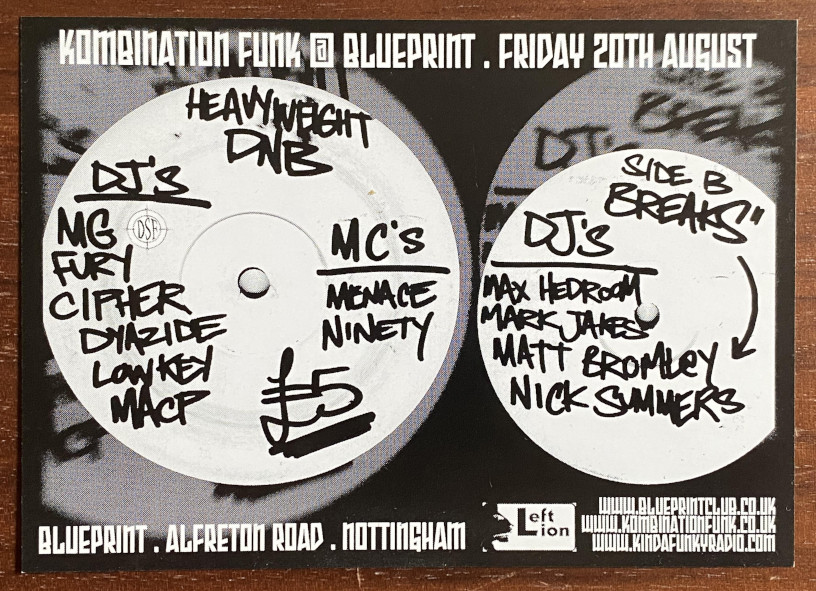 KOMBINATION FUNK @ BLUEPRINT . FRIDAY 20TH AUGUST
HEAVYWEIGHT
DNB
DJ'S
MG
FURY
CIPHER
DYAZIDE
LOWKEY
MACP
DSF
MC'S
MENACE
NINETY
£5
SIDE B
BREAKS"
DJ'S
MAX HEDROOM
MARK JAKES
MATT BROMLEY
NICK SUMMERS
BLUEPRINT . ALFRETON ROAD . NOTTINGHAM
Left
Lion
WWW.BLUEPRINTCLUB.CO.UK
WWW.KOMBINATIONFUNK.CO.UK
WWW.KINDAFUNKYRADIO.COM